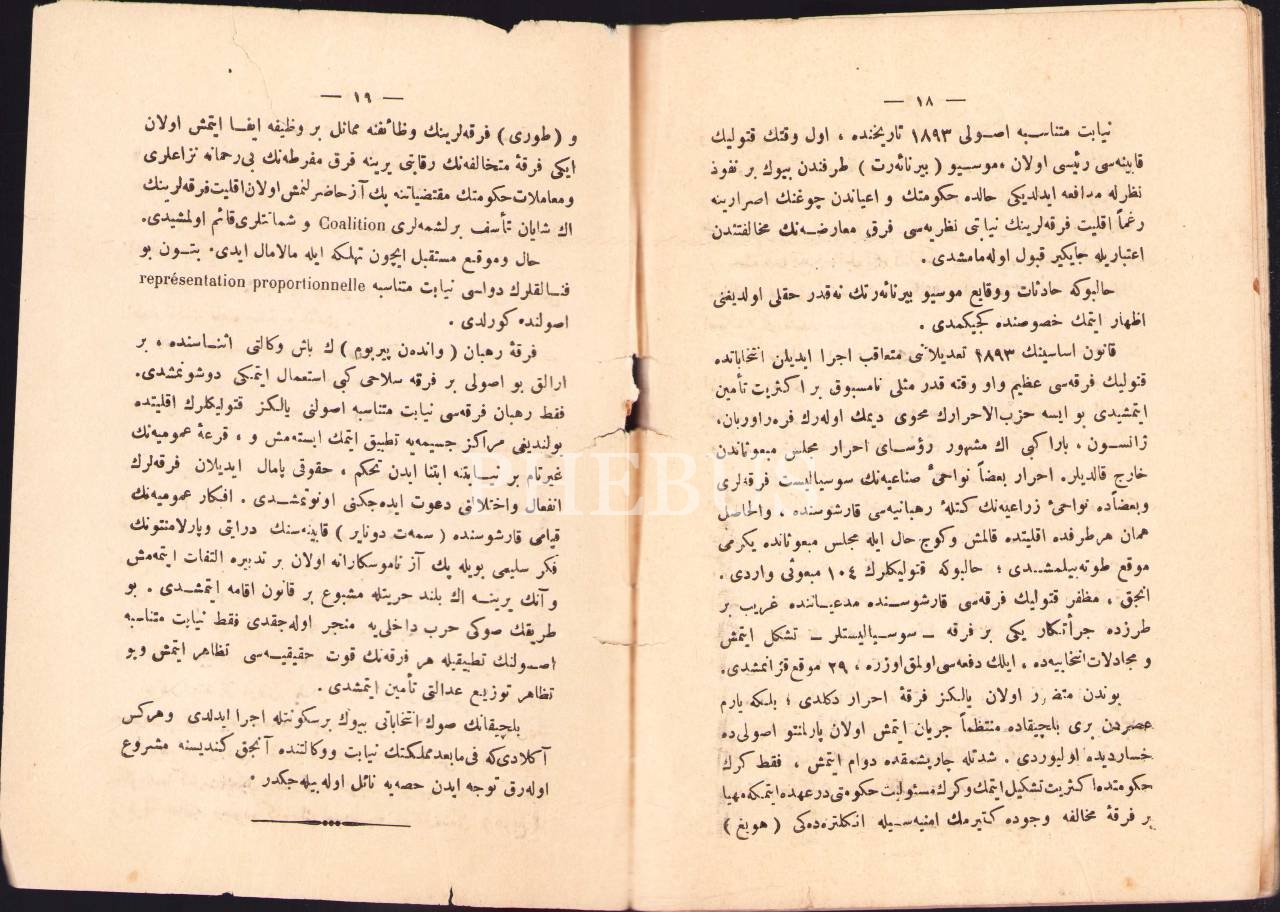 — ١٨ —
نیابت متناسبه اصولی ١٨٩٣ تاریخنده ، اول وقتك قتولیك
قابینه‌سی رئیسی اولان موسیو ( بیرنائه‌رت ) طرفندن بیوك بر نفوذ
نظرله مدافعه ایدلدیكی حالده حكومتك و اعیاندن چوغنك اصرارینه
رغماً اقلیت فرقه‌لرینك نیابتی نظریه‌سی فرق معارضه‌نك مخالفتندن
اعتباریله جایگیر قبول اوله‌مامشدی .
حالبوكه حادثات ووقایع موسیو بیرنائه‌رتك نه‌قدر حقلی اولدیغنی
اظهار ایتمك خصوصنده كجیكمدی .
قانون اساسینك ١٨٩٣ تعدیلاتنی متعاقب اجرا ایدیلن انتخاباتده
قتولیك فرقه‌سی عظیم واو وقته قدر مثلی نامسبوق بر اكثریت تأمین
ایتمشدی بو ایسه حزب‌الاحرارك محوی دیمك اوله‌رق فره‌راوربان،
ژانسون ، بارا كبی اك مشهور رؤسای احرار مجلس مبعوثاندن
خارج قالدیلر. احرار بعضاً نواحیٔ صناعیه‌نك سوسیالیست فرقه‌لری
وبعضاده نواحیٔ زراعیه‌نك كتلهٔ رهبانیه‌سی قارشوسنده ، والحاصل
همان هر طرفده اقلیتده قالمش وكوج حال ایله مجلس مبعوثانده یكرمی
موقع طوته‌بیلمشدی ؛ حالبوكه قتولیكلرك ١٠٤ مبعوثی واردی .
انجق ، مظفر قتولیك فرقه‌سی قارشوسنده مدعیاتنده غریب بر
طرزده جرأتكار یكی بر فرقه ــ سوسیالیستلر ــ تشكل ایتمش
و مجادلات انتخابیه‌ده ، ایلك دفعه‌سی اولمق اوزره ، ٢٩ موقع قزانمشدی.
بوندن متضرر اولان یالكز فرقهٔ احرار دكلدی ؛ بلكه یارم
عصردن بری بلچیقاده منتظماً جریان ایتمش اولان پارلمنتو اصولی‌ده
خساردیده اولیوردی . شدتله چاریشمقده دوام ایتمش ، فقط كرك
حكومتده اكثریت تشكیل ایتمك وكرك مسئولیت حكومتی درعهده ایتمكه مهیا
بر فرقهٔ مخالفه وجوده كتیرمك امنیه‌سیله انكلتره‌ده‌كی ( هویغ )
— ١٩ —
و ( طوری ) فرقه‌لرینك وظائفنه مماثل بر وظیفه ایفا ایتمش اولان
ایكی فرقهٔ متخالفه‌نك رقابتی یرینه فرق مفرطه‌نك بی‌رحمانه نزاعلری
ومعاملات حكومتك مقتضیاتنه پك آز حاضرلنمش اولان اقلیت فرقه‌لرینك
اك شایان تأسف برلشمه‌لری Coalition و شماتتلری قائم اولمشیدی.
حال وموقع مستقبل ایچون تهلكه ایله مالامال ایدی. بتون بو
فنالقلرك دواسی نیابت متناسبه représentation proportionnelle
اصولنده كورلدی .
فرقهٔ رهبان ( وانده‌ن پیربوم ) ك باش وكالتی اثناسنده ، بر
ارالق بو اصولی بر فرقه سلاحی كبی استعمال ایتمكی دوشونمشدی.
فقط رهبان فرقه‌سی نیابت متناسبه اصولنی یالكز قتولیكلرك اقلیتده
بولندیغی مراكز جسیمه‌یه تطبیق ایتمك ایسته‌مش و ، قرعهٔ عمومیه‌نك
غیرتام بر نیابتنه ابتنا ایدن تحكم ، حقوقی پامال ایدیلان فرقه‌لرك
انفعال واختلالنی دعوت ایده‌جكنی اونوتمشدی . افكار عمومیه‌نك
قیامی قارشوسنده ( سمه‌ت دونایر ) قابینه‌سنك درایتی وپارلامنتونك
فكر سلیمی بویله پك آز ناموسكارانه اولان بر تدبیره التفات ایتمه‌مش
وآنك یرینه اك بلند حریتله مشبوع بر قانون اقامه ایتمشدی . بو
طریقك صوكی حرب داخلی‌یه منجر اوله‌جقدی فقط نیابت متناسبه
اصولنك تطبیقیله هر فرقه‌نك قوت حقیقیه‌سی تظاهر ایتمش وبو
تظاهر توزیع عدالتی تأمین ایتمشدی .
بلچیقانك صوك انتخاباتی بیوك بر سكونتله اجرا ایدلدی وهركس
آكلادی‌كه فی‌مابعد مملكتك نیابت ووكالتنده آنجق كندیسنه مشروع
اوله‌رق توجه ایدن حصه‌یه نائل اوله‌بیله‌جكدر .
PHEBUS